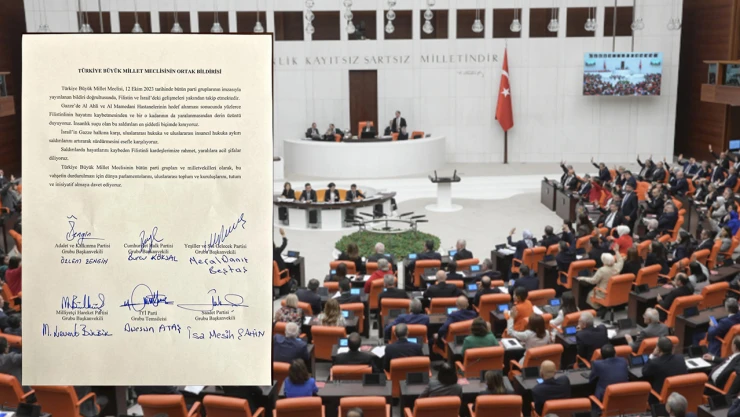 TÜRKİYE BÜYÜK MİLLET MECLİSİNİN ORTAK BİLDİRİSİ
Türkiye Büyük Millet Meclisi, 12 Ekim 2023 tarihinde bütün parti gruplarının imzasıyla
yayımlanan bildiri doğrultusunda, Filistin ve İsrail'deki gelişmeleri yakından takip etmektedir.
Gazze'de Al Ahli ve Al Mamedani Hastanelerinin hedef alınması sonucunda yüzlerce
Filistinlinin hayatını kaybetmesinden ve bir o kadarının da yaralanmasından derin üzüntü
duyuyoruz. İnsanlık suçu olan bu saldırıları en şiddetli biçimde kınıyoruz.
İsrail'in Gazze halkına karşı, uluslararası hukuka ve uluslararası insancıl hukuka aykırı
saldırılarını artırarak sürdürmesini esefle karşılıyoruz.
Saldırılarda hayatlarını kaybeden Filistinli kardeşlerimize rahmet, yaralılara acil şifalar
diliyoruz.
Türkiye Büyük Millet Meclisinin bütün parti grupları ve milletvekilleri olarak, bu
vahşetin durdurulması için dünya parlamentolarını, uluslararası toplum ve kuruluşlarını, tutum
ve inisiyatif almaya davet ediyoruz.
Adalet ve Kalkınma Partisi
Grubu Başkanvekili
ÖZLEM ZENGİN
Cumhuriyet Halk Partisi
Grubu Başkanvekili
Burcu KÖKSAL
Yeşiller ve Sol Gelecek Partisi
Grubu Başkanvekili
Meral Danış
Beştaş
Milliyetçi Hareket Partisi
Grubu Başkanvekili
M. Levent Bülbül
İYİ Parti
Grubu Temsilcisi
Dursun ATAŞ
Saadet Partisi
Grubu Başkanvekili
İsa Mesih ŞAHİN
KAYITSIZ ŞARTSIZ MİLLETİNDİR